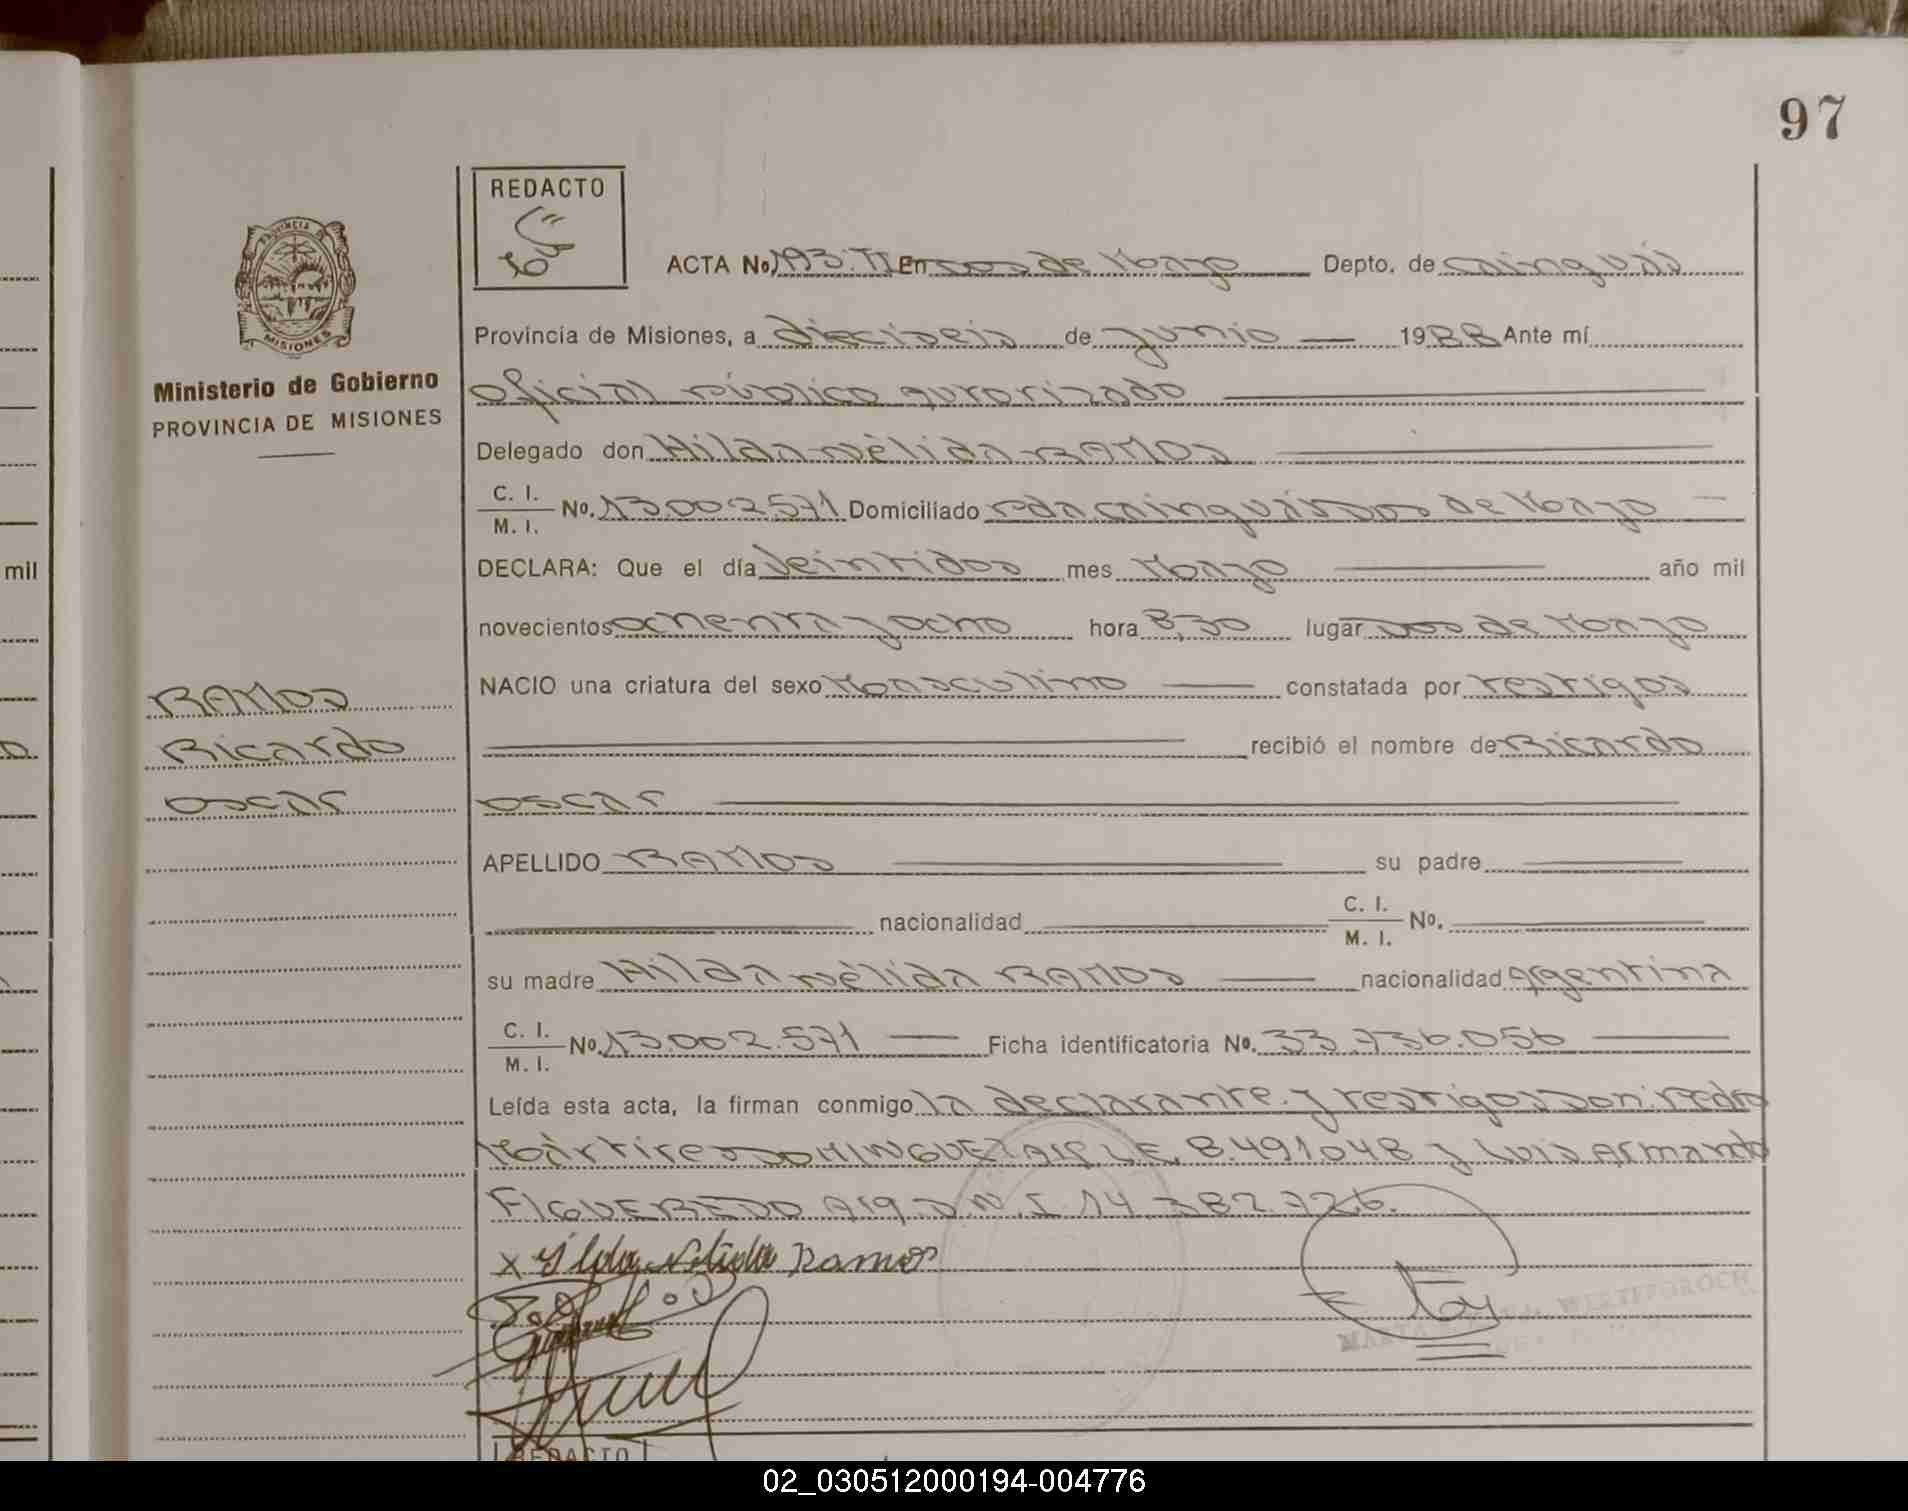 97
REDACTO
PROVINCIA DE
MISIONES
Ministerio de Gobierno
PROVINCIA DE MISIONES
ACTA No. 193. TI En Dos de Mayo Depto. de Cainguás
Provincia de Misiones, a dieciseis de junio 1988 Ante mí
Oficial Público autorizado
Delegado don Hilda Nélida RAMOS
C. I.
M. I. No. 13.002.571 Domiciliado Pda Cainguás Dos de Mayo
mil
DECLARA: Que el día Veintidos mes Mayo año mil
novecientos ochenta y ocho hora 8,30 lugar Dos de Mayo
NACIO una criatura del sexo Masculino constatada por testigos
RAMOS
Ricardo
Oscar
recibió el nombre de Ricardo
Oscar
APELLIDO RAMOS su padre
nacionalidad C. I.
M. I. No.
su madre Hilda Nélida RAMOS nacionalidad Argentina
C. I.
M. I. No. 13.002.571 Ficha identificatoria No. 33.736.056
Leída esta acta, la firman conmigo la declarante y testigos Don: Pedro
Mártires DOMINGUEZ L.E. 8.491.048 y Luis Armando
FIGUEREDO A19 D.N.I. 14.382.726.
x Ilda Nelida Ramos
MARTA WERTFFOROCH
REDACTO
02_030512000194-004776